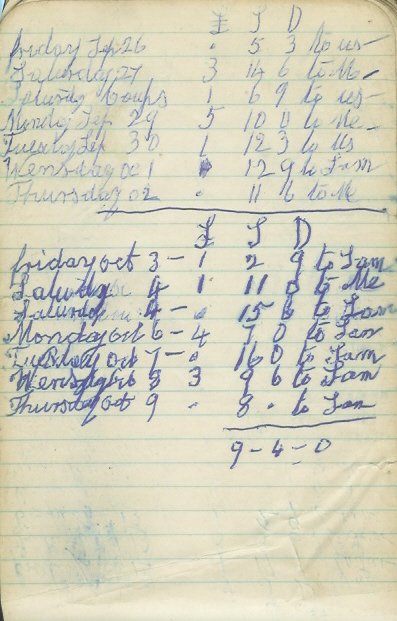 £ S D
friday Sep 26 . 5 3 to us
Saturday 27 3 14 6 to Me
Saturday 1 6 9 to us
Monday Sep 29 5 10 0 to Me
Tuesday Sep 30 1 12 3 to Us
Wensday 1 12 9 to Sam
Thursday 02 . 11 6 to Me
£ S D
friday oct 3 - 1 2 9 to Sam
Saturday 4 1 11 0 to Me
Saturday 4 - . 15 6 to Sam
Monday oct 6 - 4 0 to Sam
Tuesday oct 7 - . 16 0 to Sam
Wensday oct 8 3 9 6 to Sam
Thursday oct 9 . 8 . to Sam
9 - 4 - 0